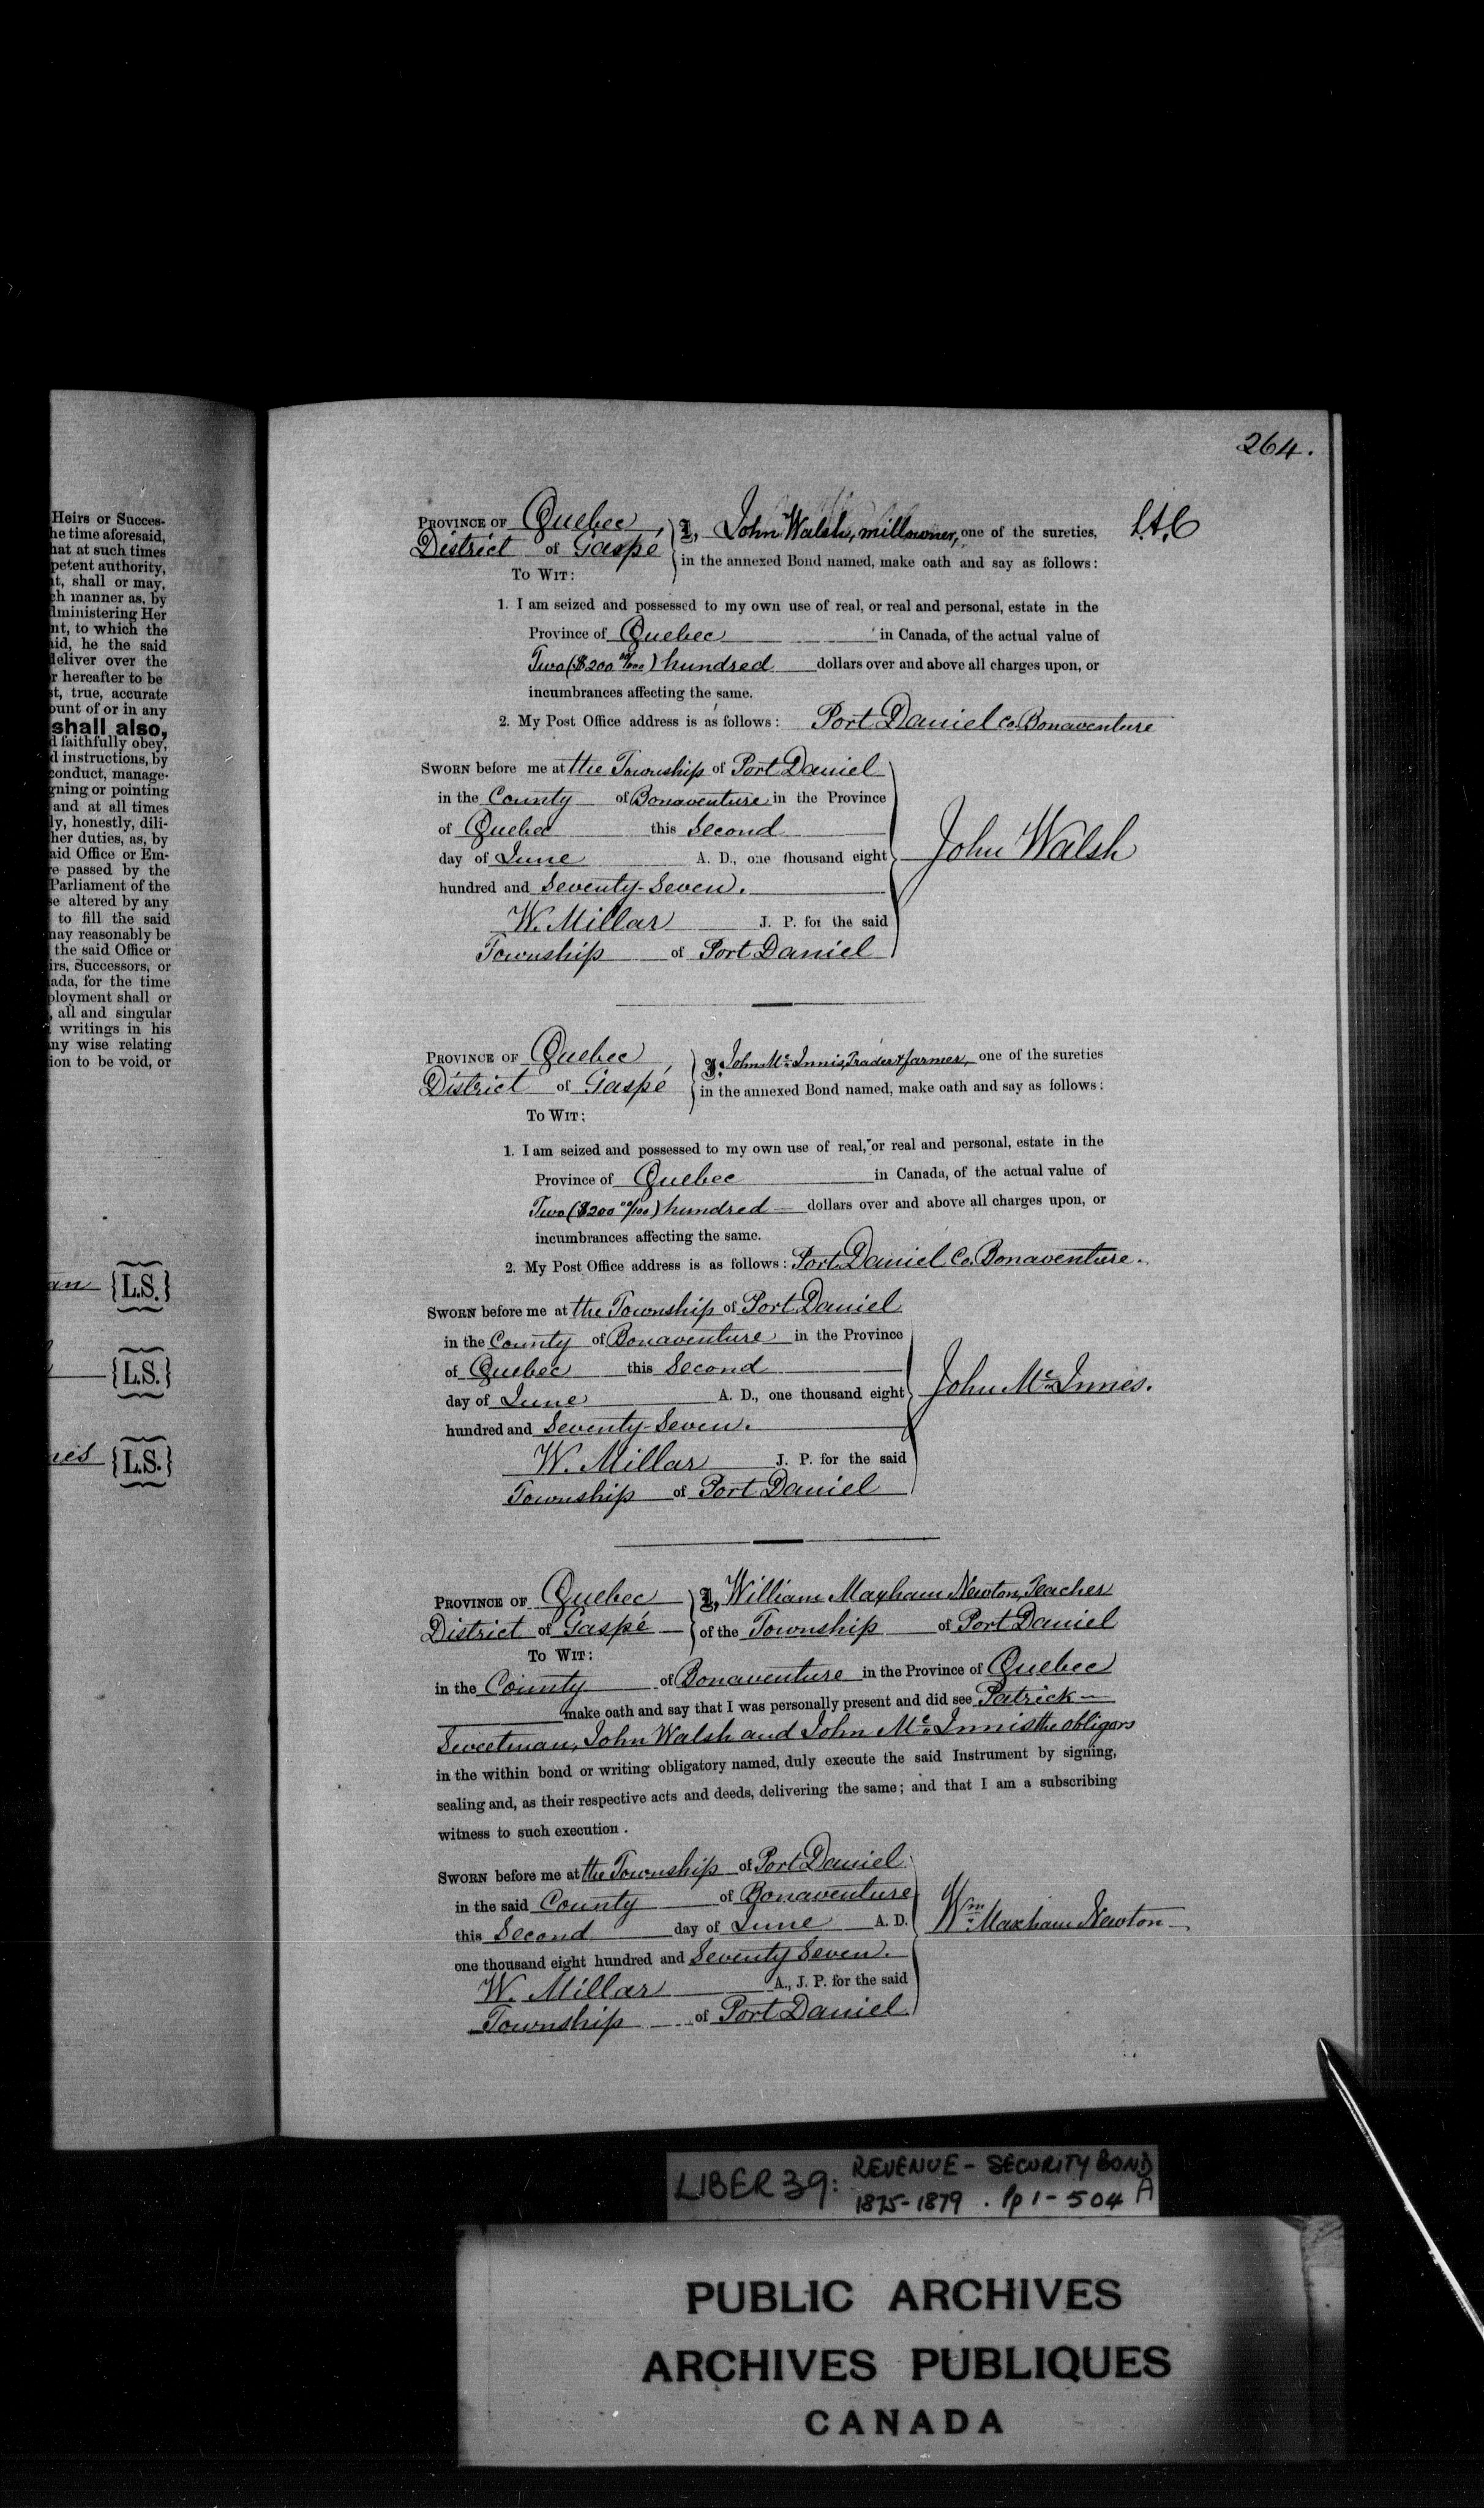 264.
Heirs or Succes-
he time aforesaid,
hat at such times
petent authority,
it, shall or may,
ch manner as, by
dministering Her
nt, to which the
aid, he the said
deliver over the
r hereafter to be
st, true, accurate
ount of or in any
shall also,
d faithfully obey,
d instructions, by
conduct, manage-
gning or pointing
and at all times
ly, honestly, dili-
her duties, as, by
aid Office or Em-
e passed by the
Parliament of the
e altered by any
to fill the said
may reasonably be
the said Office or
irs, Successors, or
ada, for the time
ployment shall or
, all and singular
writings in his
ny wise relating
ion to be void, or
an {L.S.}
{L.S.}
nes {L.S.}
PROVINCE OF Quebec, I, John Walsh, millowner, one of the sureties,
District of Gaspé in the annexed Bond named, make oath and say as follows:
TO WIT:
1. I am seized and possessed to my own use of real, or real and personal, estate in the
Province of Quebec in Canada, of the actual value of
Two ($200 00/100) hundred dollars over and above all charges upon, or
incumbrances affecting the same.
2. My Post Office address is as follows: Port Daniel Co. Bonaventure
SWORN before me at the Township of Port Daniel
in the County of Bonaventure in the Province
of Quebec this Second
day of June A. D., one thousand eight John Walsh
hundred and Seventy-Seven.
W. Millar J. P. for the said
Township of Port Daniel
PROVINCE OF Quebec, I, John Mc Innis, Trader & farmer, one of the sureties
District of Gaspé in the annexed Bond named, make oath and say as follows:
TO WIT:
1. I am seized and possessed to my own use of real, or real and personal, estate in the
Province of Quebec in Canada, of the actual value of
Two ($200 00/100) hundred dollars over and above all charges upon, or
incumbrances affecting the same.
2. My Post Office address is as follows: Port Daniel Co. Bonaventure.
SWORN before me at the Township of Port Daniel
in the County of Bonaventure in the Province
of Quebec this Second
day of June A. D., one thousand eight John Mc Innes.
hundred and Seventy-Seven.
W. Millar J. P. for the said
Township of Port Daniel
PROVINCE OF Quebec I, William Maxham Newton, Teacher
District of Gaspé of the Township of Port Daniel
TO WIT:
in the County of Bonaventure in the Province of Quebec
make oath and say that I was personally present and did see Patrick
Sweetman, John Walsh and John Mc Innis the obligors
in the within bond or writing obligatory named, duly execute the said Instrument by signing,
sealing and, as their respective acts and deeds, delivering the same; and that I am a subscribing
witness to such execution.
SWORN before me at the Township of Port Daniel
in the said County of Bonaventure
this Second day of June A. D. Wm Maxham Newton
one thousand eight hundred and Seventy Seven.
W. Millar A., J. P. for the said
Township of Port Daniel
LIBER 39: REVENUE - SECURITY BOND
1875-1879. Pp 1-504 A
PUBLIC ARCHIVES
ARCHIVES PUBLIQUES
CANADA